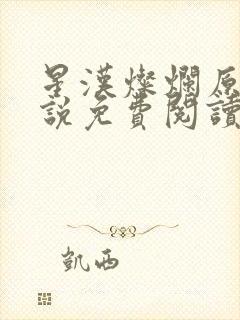 星漢燦爛原
說免費閱讀
凱西